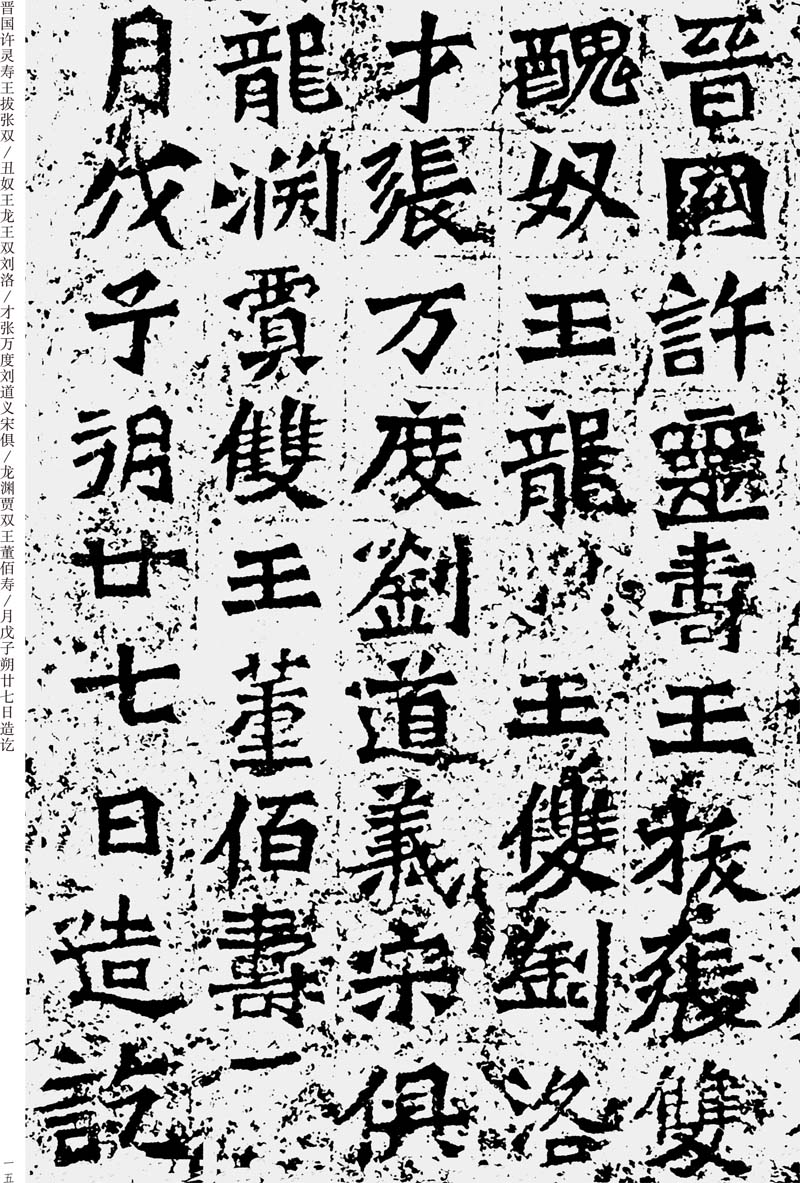 晋国许灵寿王拔张双/丑奴王龙王双刘洛/才张万度刘道义宋俱/龙渊贾双王董佰寿/月戊子朔廿七日造讫
晉國許靈壽王拔張雙
醜奴王龍王雙劉洛
才張万度劉道義宋俱
龍淵賈雙王董佰壽一
月戊子朔廿七日造訖
一五